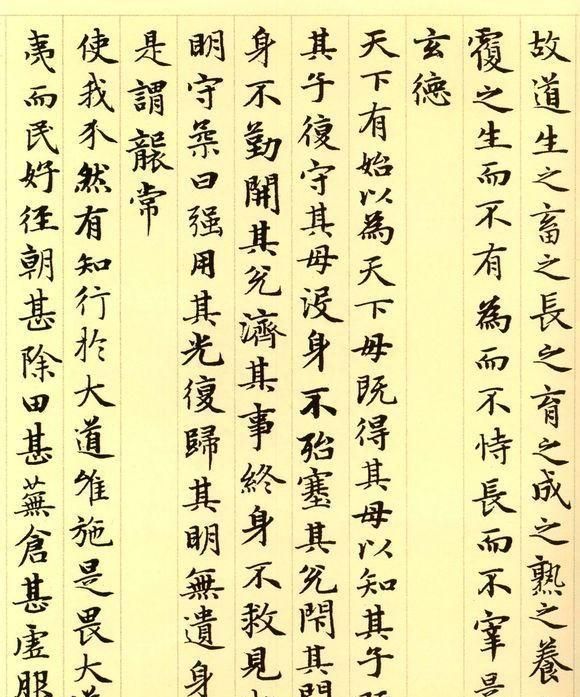 故道生之畜之長之育之成之熟之養
覆之生而不有為而不恃長而不宰是
玄德
天下有始以為天下母既得其母以知其子
其子復守其母没身不殆塞其兌閉其門
身不勤開其兌濟其事終身不救見
明守柔曰强用其光復歸其明無遺身
是謂襲常
使我介然有知行於大道唯施是畏大道
夷而民好徑朝甚除田甚蕪倉甚虛服